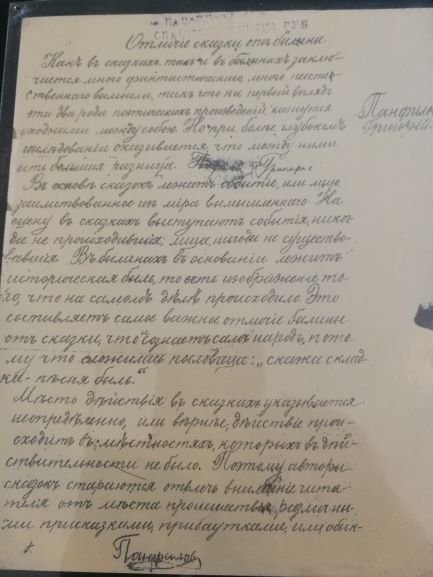 Отличіе сказки отъ былины.
Какъ въ сказкахъ, такъ и въ былинахъ заклю-
чается много фантастическаго, много неесте-
ственнаго вымысла, такъ что на первый взглядъ
эти два рода поэтическихъ произведеній кажутся
сходными между собою. Но при болѣе глубокомъ
изслѣдованіи оказывается, что между ними
есть большая разница.
Григорій
Въ основѣ сказокъ лежитъ событіе, или лицо
заимствованное изъ міра вымышленнаго. На
сцену въ сказкахъ выступаютъ событія, никог-
да не происходившія, лица, нигода не существо-
вавшія. Въ былинахъ въ основаніи лежитъ
историческая быль, то есть изображеніе то-
го, что на самомъ дѣлѣ происходило. Это
составляетъ самое важное отличіе былины
отъ сказки, что сознаетъ самъ народъ, пото-
му что сложилась пословица: „сказка склад-
ка - пѣсня быль."
Мѣсто дѣйствія въ сказкахъ указывается
неопредѣленно, или вѣрнѣе, дѣйствіе прои-
сходитъ въ мѣстностяхъ, которыхъ въ дѣй-
ствительности не было. Поэтому авторы
сказокъ стараются отвлечь вниманіе чита-
теля отъ мѣста происшествія, различны-
ми присказками, прибаутками, или обык-
Панфилов
Григорій.